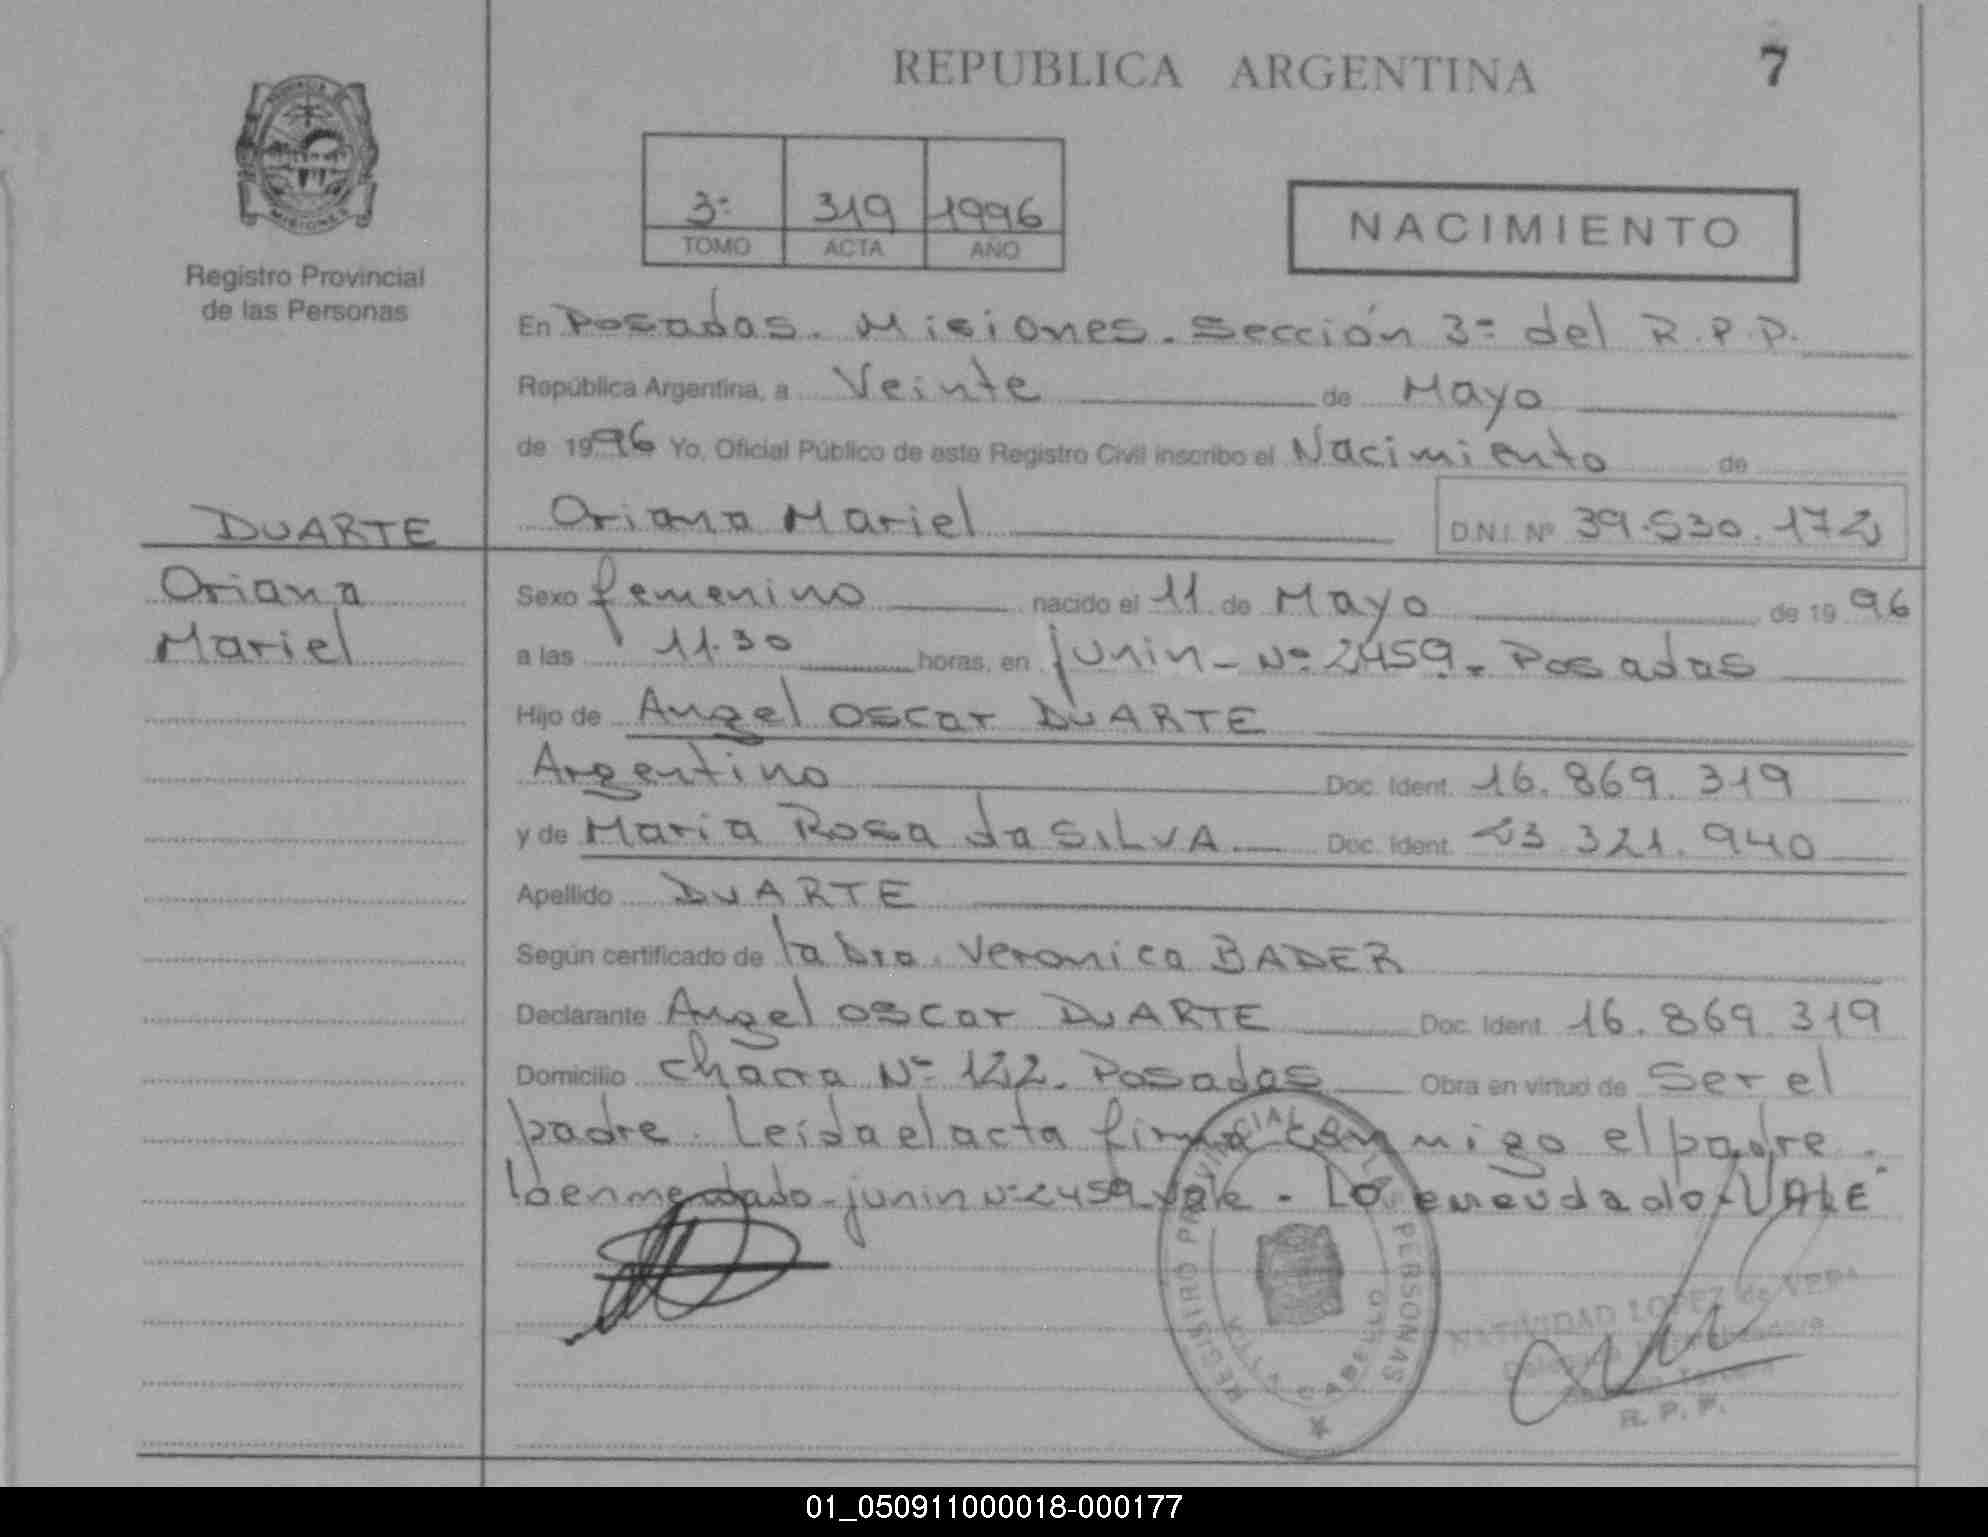 REPUBLICA ARGENTINA
7
MISIONES
Registro Provincial
de las Personas
3ª 319 1996
TOMO ACTA AÑO
NACIMIENTO
En Posadas. Misiones. Sección 3ª del R.P.P.
República Argentina, a Veinte de Mayo
de 1996 Yo, Oficial Público de este Registro Civil inscribo el Nacimiento de
DUARTE
Oriana Mariel
D.N.I. Nº 39.530.172
Oriana
Mariel
Sexo femenino nacido el 11 de Mayo de 1996
a las 11.30 horas, en junin - Nº 2459. Posadas
Hijo de Angel Oscar DUARTE
Argentino Doc. Ident. 16.869.319
y de Maria Rosa da SILVA Doc. Ident. 23.321.940
Apellido DUARTE
Según certificado de la Dra. Veronica BADER
Declarante Angel Oscar DUARTE Doc. Ident. 16.869.319
Domicilio Chacra Nº 122. Posadas Obra en virtud de Ser el
padre. Leída el acta firma conmigo el padre.
lo enmendado - junin Nº 2459 vale - Lo enmendado - VALE
REGISTRO PROVINCIAL DE LAS PERSONAS
NATIVIDAD LOPEZ de VERA
R. P. P.
01_050911000018-000177